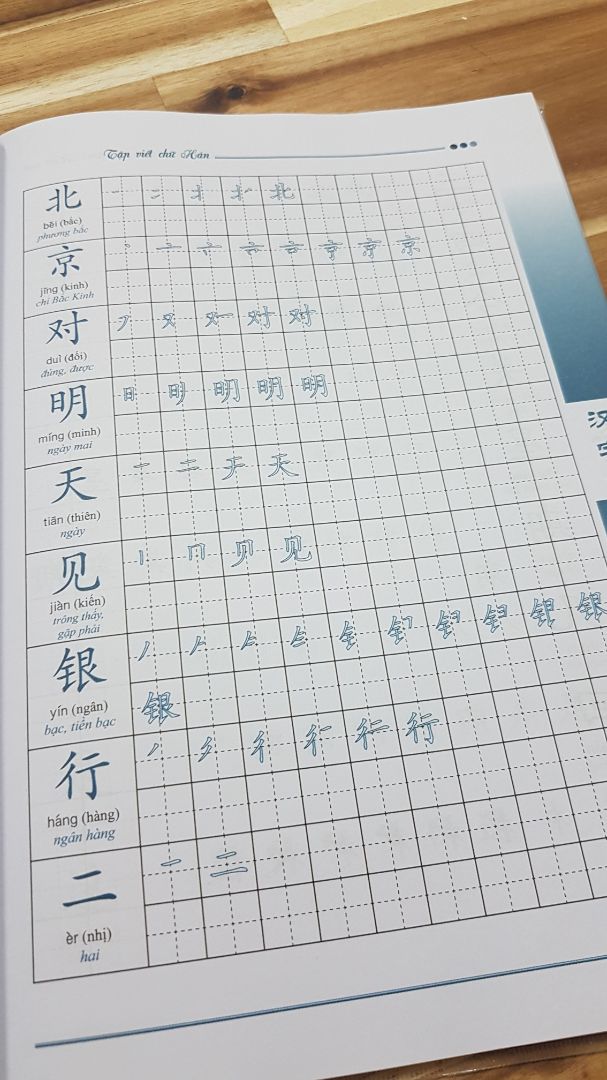 Tập viết chữ Hán
北
běi (bắc)
phương bắc
京
jīng (kinh)
chỉ Bắc Kinh
对
duì (đối)
đúng, được
明
míng (minh)
ngày mai
天
tiān (thiên)
ngày
见
jiàn (kiến)
trông thấy,
gặp phải
银
yín (ngân)
bạc, tiền bạc
行
háng (hàng)
ngân hàng
二
èr (nhị)
hai
汉